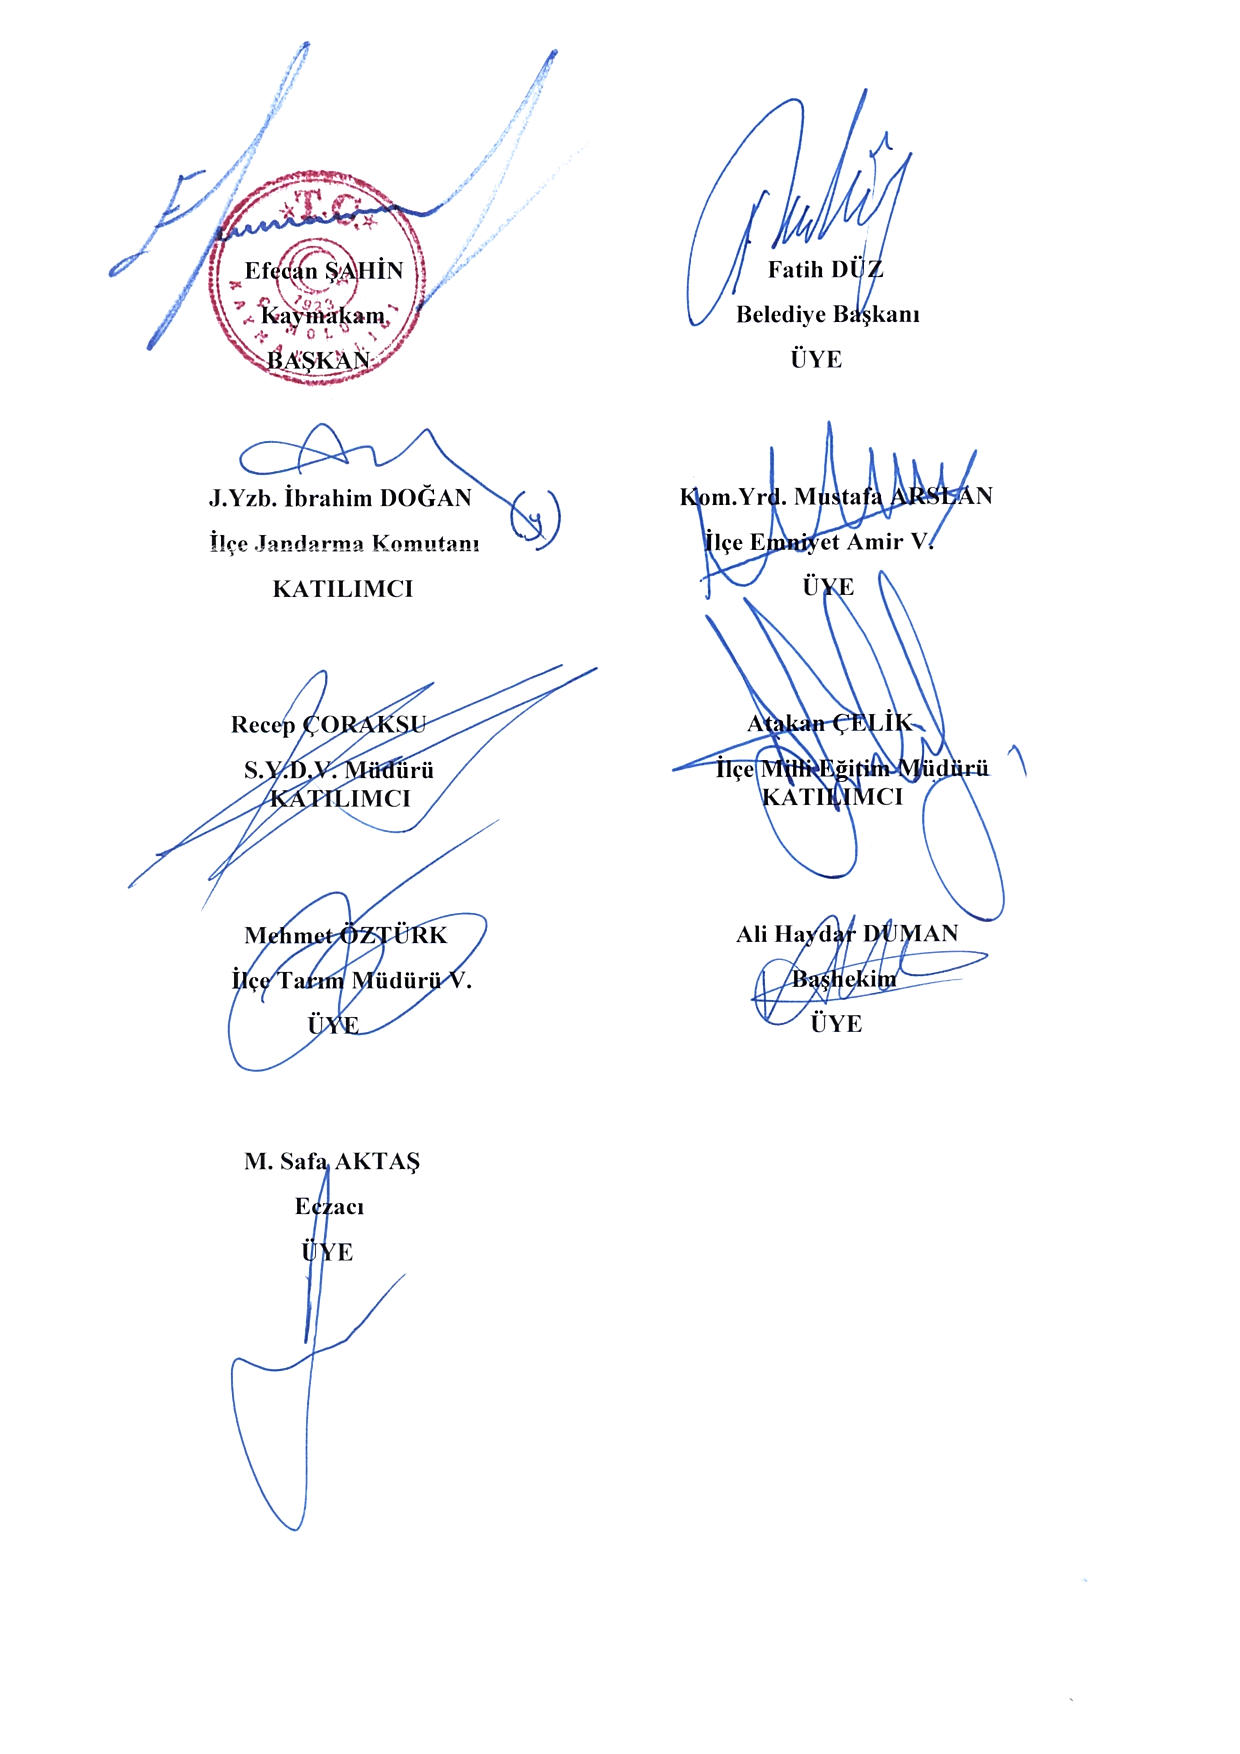 T.C.
ÇAMOLUK
KAYMAKAMLIĞI
1923
Efecan ŞAHİN
Kaymakam
BAŞKAN
Fatih DÜZ
Belediye Başkanı
ÜYE
J.Yzb. İbrahim DOĞAN
İlçe Jandarma Komutanı
KATILIMCI
(y)
Kom.Yrd. Mustafa ARSLAN
İlçe Emniyet Amir V.
ÜYE
Recep ÇORAKSU
S.Y.D.V. Müdürü
KATILIMCI
Atakan ÇELİK
İlçe Milli Eğitim Müdürü
KATILIMCI
Mehmet ÖZTÜRK
İlçe Tarım Müdürü V.
ÜYE
Ali Haydar DUMAN
Başhekim
ÜYE
M. Safa AKTAŞ
Eczacı
ÜYE